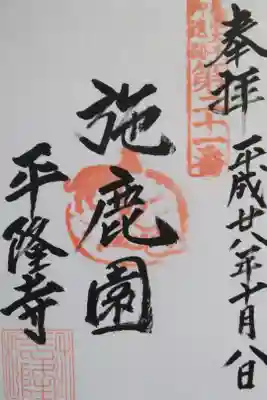 奉拝
平成廿八年十月八日
第二十一番
施鹿園
平隆寺